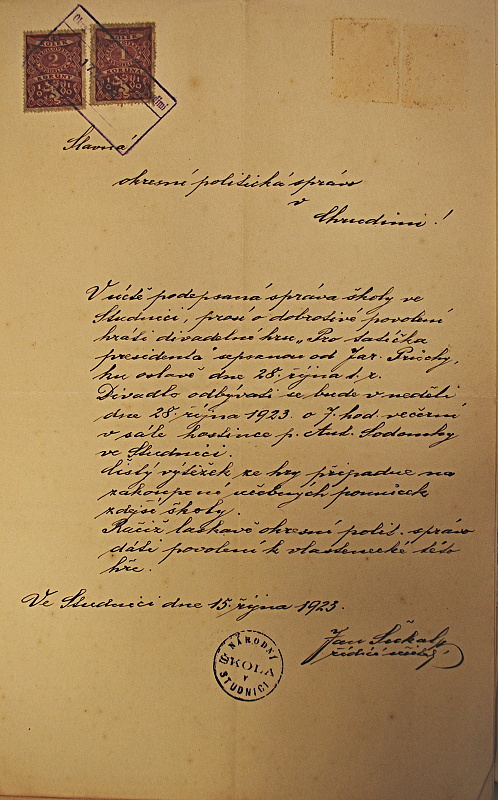 KOLEK
2
KORUNY
KOLEK
1
KORUNA
Slavná
okresní politická správo
v
Chrudimi!
V úctě podepsaná správa školy ve
Studnici, prosí o dobrotivé povolení
hráti divadelné hru „Pro tatíčka
presidenta sepsanou od Jar. Průchy,
ku oslavě dne 28. října t. r.
Divadlo odbývati se bude v neděli
dne 28. října 1923. o 7. hod. večerní
v sále hostince p. Ant. Sodomky
ve Studnici.
Čistý výtěžek ze hry připadne na
zakoupené učebných pomůcek
zdejší školy.
Račiž laskavě okresní polit. správo
dáti povolení k vlastenecké této
hře.
Ve Studnici dne 15. října 1923.
Jan
řídící učitel
NÁRODNÍ
ŠKOLA
V
STUDNICI